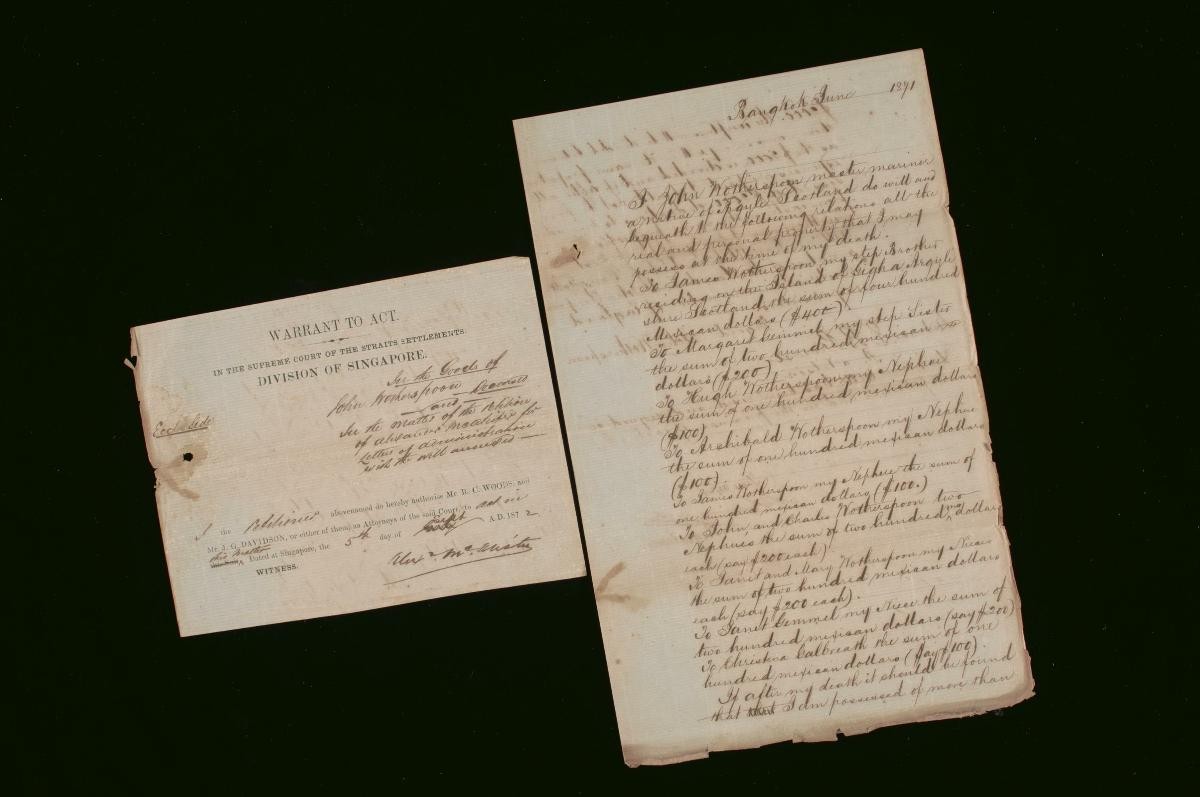 WARRANT TO ACT.
IN THE SUPREME COURT OF THE STRAITS SETTLEMENTS.
DIVISION OF SINGAPORE.
In the Goods of
John Wotherspoon
and
In the matter of the Petition
of
Letters of administration
with the will annexed
I the Petitioner abovenamed do hereby authorise Mr. R. C. WOODS, and
Mr. J. G. DAVIDSON, or either of them, as Attorneys of the said Court, to act in
this matter
Dated at Singapore, the 5th day of Sept A.D. 1872
WITNESS.
Bangkok June 1871
I John Wotherspoon master mariner
a native of Argyle Scotland do will and
bequeath to the following relations all the
real and personal property that I may
possess at the time of my death.
To James Wotherspoon my step Brother
residing on the Island of Gigha Argyle
shire Scotland the sum of four hundred
Mexican dollars ($400)
To Margaret Gemmel my step Sister
the sum of two hundred mexican
dollars ($200)
To Hugh Wotherspoon my Nephue
the sum of one hundred mexican dollars
($100)
To Archibald Wotherspoon my Nephue
the sum of one hundred mexican dollars
($100).
To James Wotherspoon my Nephue the sum of
one hundred mexican dollars ($100.)
To John, and Charles Wotherspoon two
Nephues the sum of two hundred mex dollars
each (say $200 each)
To Janet and Mary Wotherspoon my Nieces
the sum of two hundred mexican dollars
each (say $200 each).
To Janet Gemmel my Niece the sum of
two hundred mexican dollars (say $200)
To Christina Calbreath the sum of one
hundred mexican dollars (say $100).
If after my death it should be found
that I am possessed of more than